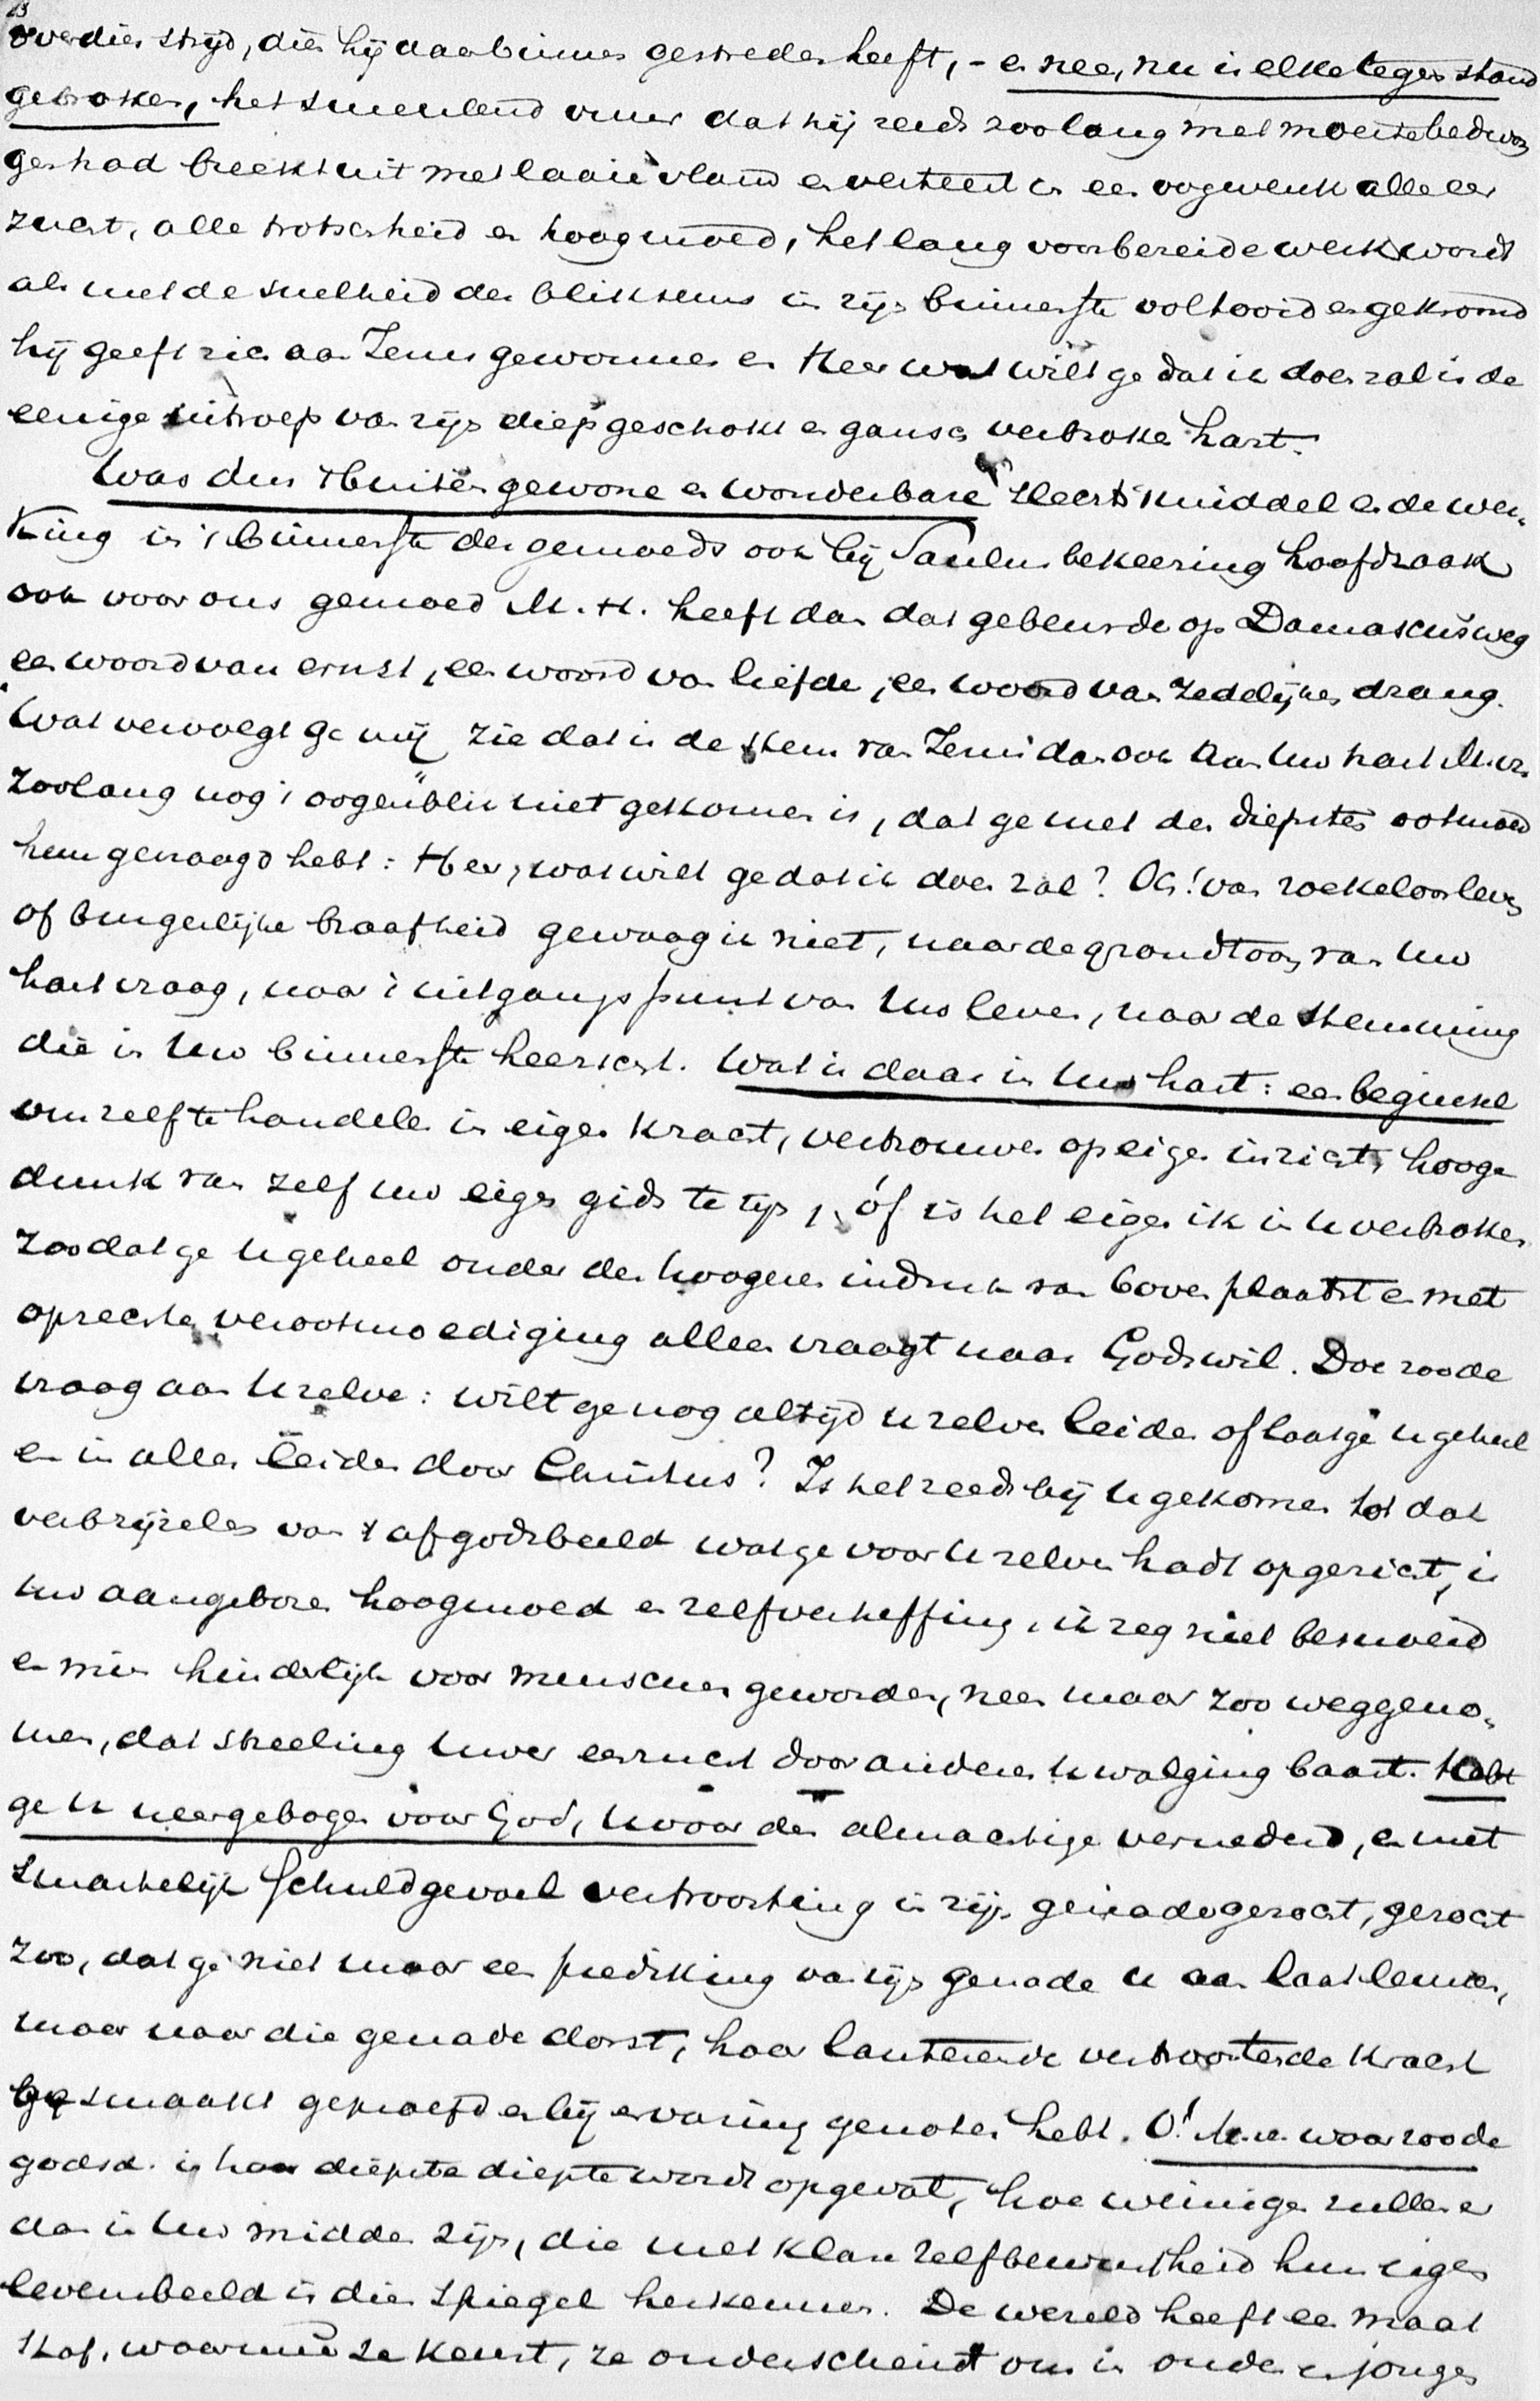 23
over dien strijd, dien hij daarbinnen gestreden heeft, - en nee, nu is elke tegenstand
gebroken, het smeulend vuur dat hij reeds zoo lang met moeite bedwon
gen had breekt uit met laaie vlam en verteert in een oogwenk alle eer
zucht, alle trotscheid en hoogmoed, het lang voorbereide werk wordt
als met de snelheid des bliksems in zijn binnenste voltooid en gekroond
hij geeft zich aan Jezus gewonnen en Heer wat wilt ge dat ik doen zal is de
eenige uitroep van zijn diep geschokt en gansch verbroken hart.
Was dus 't buitengewone en wonderbare slechts middel en de wer-
king in 't binnenste des gemoeds ook bij Paulus bekeering hoofdzaak
ook voor ons gemoed M. H. heeft dan dat gebeurde op Damascus weg
een woord van ernst, een woord van liefde, een woord van zedelijken drang.
"Wat vervolgt ge mij" zie dat is de stem van Jezus dan ook aan Uw hart M. H.
zoolang nog 't oogenblik niet gekomen is, dat ge met den diepsten ootmoed
hem gevraagd hebt: Heer, wat wilt ge dat ik doen zal? Och! van roekeloos leven
of burgerlijke braafheid gewaag ik niet, naar de grondtoon van Uw
hart vraag, naar 't uitgangspunt van Uw leven, naar de stemming
die in Uw binnenste heerscht. Wat is daar in Uw hart: een beginsel
om zelf te handelen in eigen kracht, vertrouwen op eigen inzicht, hooge
dunk van zelf uw eigen gids te zijn, óf is het eigen ik in U verbroken
zoodat ge U geheel onder den hoogeren indruk van boven plaatst en met
oprechte verootmoediging alleen vraagt naar Gods wil. Doe zoo de
vraag aan Uzelve: wilt ge nog altijd uzelven leiden of laat ge U geheel
en in alles leiden door Christus? Is het reeds bij U gekomen tot dat
verbrijzelen van 't afgodsbeeld wat ge voor Uzelven hadt opgericht, is
uw aangeboren hoogmoed en zelfverheffing, ik zeg niet besnoeid
en min hinderlijk voor menschen geworden, neen maar zoo weggeno-
men, dat streeling Uwer eerzucht door anderen U walging baart. Hebt
ge U neergebogen voor God, U voor den almachtige vernederd, en met
smartelijk schuldgevoel vertroosting in zijn genade gezocht, gezocht
zoo, dat ge niet maar een prediking van zijn genade U aan laat leunen,
maar naar die genade dorst, haar louterende vertroostende kracht
gesmaakt geproefd en bij ervaring genoten hebt. O! M. H. waar zoo de
godsd. in haar diepste diepte wordt opgevat, hoe weinigen zullen er
dan in Uw midden zijn, die met klare zelfbewustheid hun eigen
levensbeeld in dien spiegel herkennen. De wereld heeft een maat
staf, waarmee ze keurt, ze onderscheidt ons in ouden en jongen